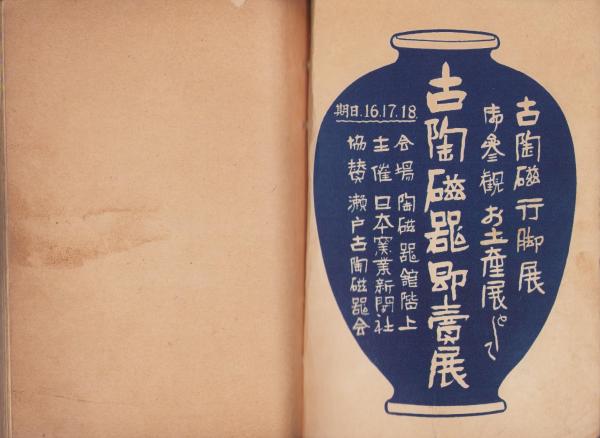 古陶磁行脚展
御参観お土産展として
古陶磁器即売展
期日.16.17.18.
会場 陶磁器館階上
主催 日本窯業新聞社
協賛 瀬戸古陶磁器会